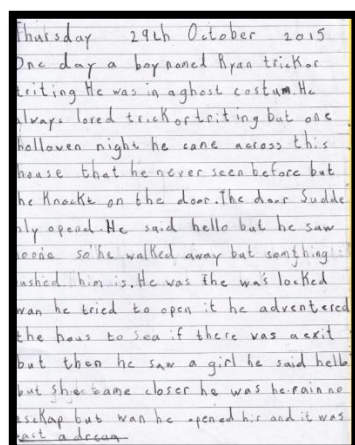 Thursday 29th October 2015
One day a boy named Ryan trick or
triting He was in a ghost costum. He
always loved trick or triting but one
hollowen night he came across this
house that he never seen before but
he Knockt on the door. The door Sudde
nly opend. He said hello but he saw
noone so he walked away but somthing
pushed him is. He was the was locked
wan he tried to open it he adventered
the hous to sea if there was a exit
but then he saw a girl he said hello
but she came closer he was he rain no
esckap but wan he opened his and it was
a dream